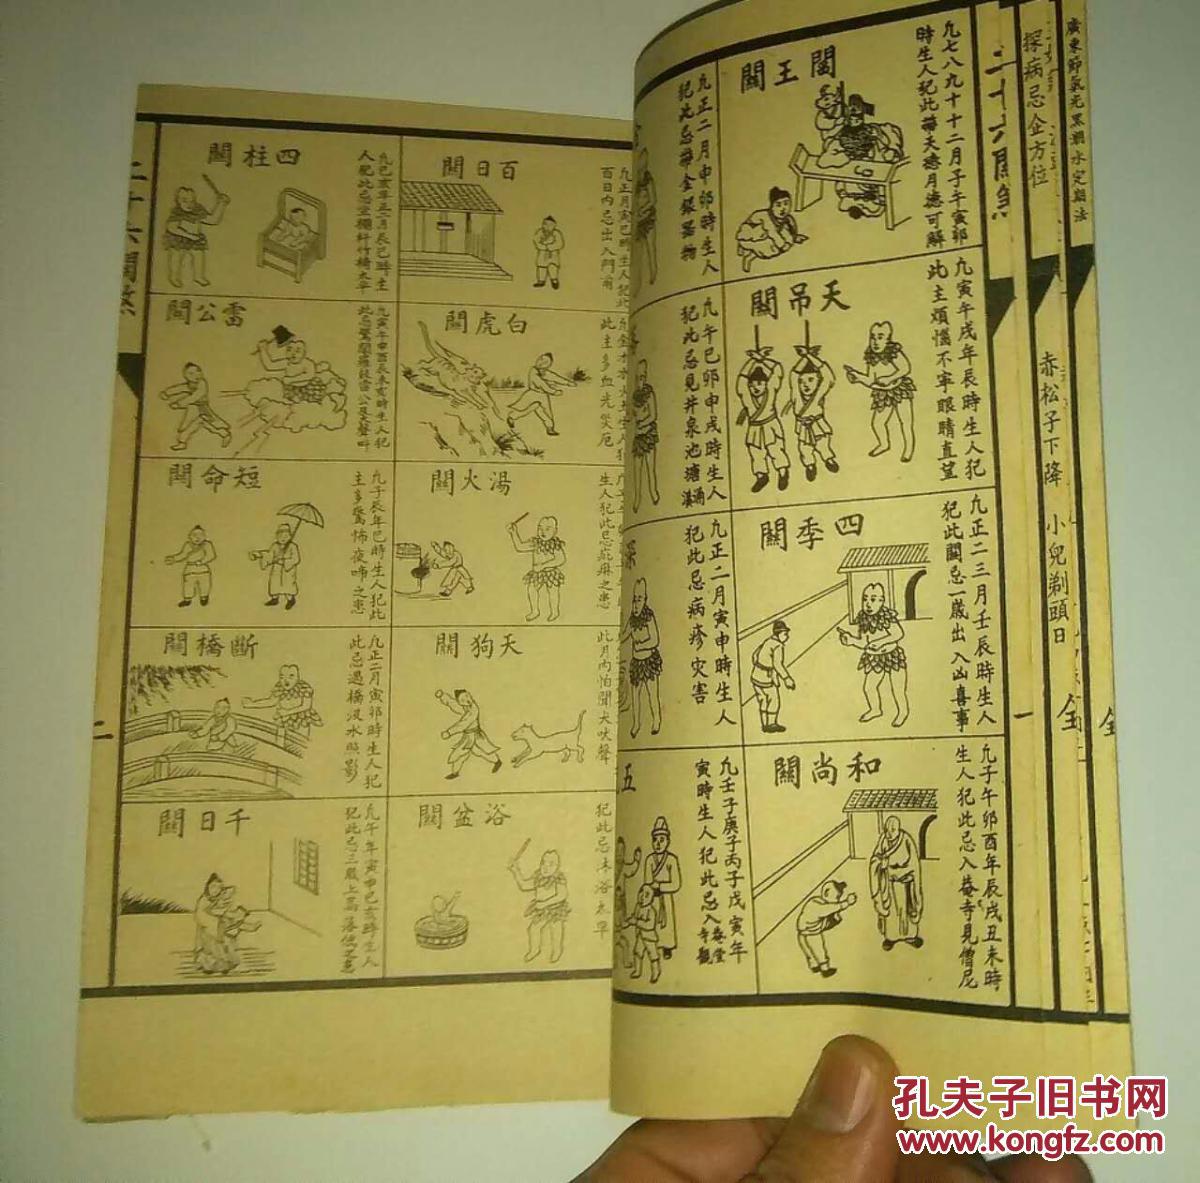 廣東節氣光黑潮水定期法
探病忌企方位
赤松子下降
小兒剃頭日
全
全
三十六關煞
一
閻王關
凡七八九十十二月子午寅卯
時生人犯此帶天德月德可解
天吊關
凡寅午戌年辰時生人犯
此主煩惱不寧眼睛直望
四季關
凡正二三月壬辰時生人
犯此關忌一歲出入凶喜事
和尚關
凡子午卯酉年辰戌丑未時
生人犯此忌入菴寺見僧尼
凡正二月申卯時生人
犯此忌帶金銀器物
凡午巳卯申戌時生人
犯此忌見井泉池塘溝
深
凡正二月寅申時生人
犯此忌病疹灾害
五
凡壬子庚子丙子戊寅年
寅時生人犯此忌入菴堂寺觀
百日關
凡正月寅巳時生人犯此
百日內忌出入門前
白虎關
此主多血光災厄
湯火關
生人犯此忌疵麻之患
天狗關
此月內怕聞犬吠聲
浴盆關
犯此忌沐浴太早
四柱關
凡巳亥年正二月辰巳時生
人犯此忌坐欄杆竹橋太早
雷公關
短命關
凡子辰年巳時生人犯此
主多驚怖夜啼之患
斷橋關
凡正二月寅卯時生人犯
此忌過橋汲水照影
千日關
凡午年寅申巳亥時生人
犯此忌三歲上高落低之患
三十六關煞
二
孔夫子旧书网
www.kongfz.com